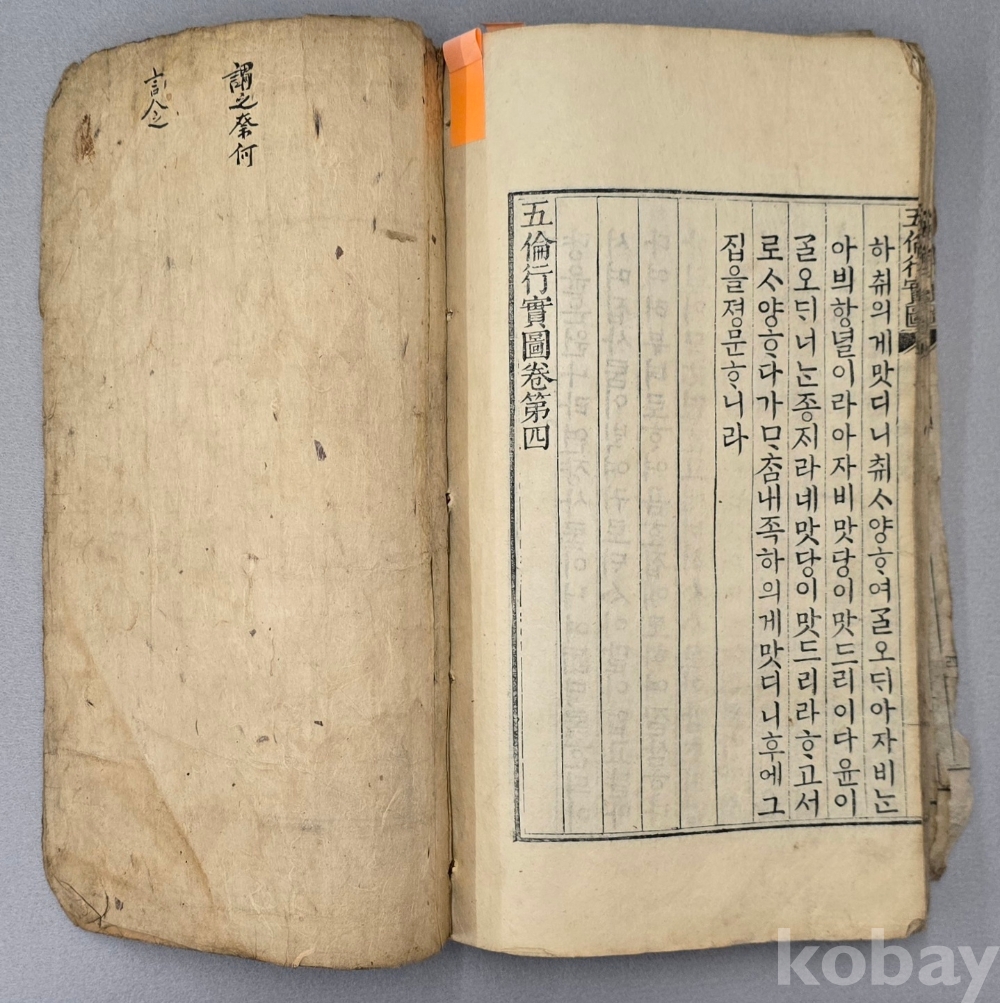 五倫行實圖
하취의게맛디니취ᄉᆞ양ᄒᆞ여ᄀᆞᆯ오ᄃᆡ아자비ᄂᆞᆫ
아븨항녈이라아자비맛당이맛드리이다윤이
ᄀᆞᆯ오ᄃᆡ너ᄂᆞᆫ종ᄌᆡ라네맛당이맛드리라ᄒᆞ고서
로ᄉᆞ양ᄒᆞ다가ᄆᆞᄎᆞᆷ내족하의게맛디니후에그
집을졍문ᄒᆞ니라
五倫行實圖卷第四
謂之奈何
kobay